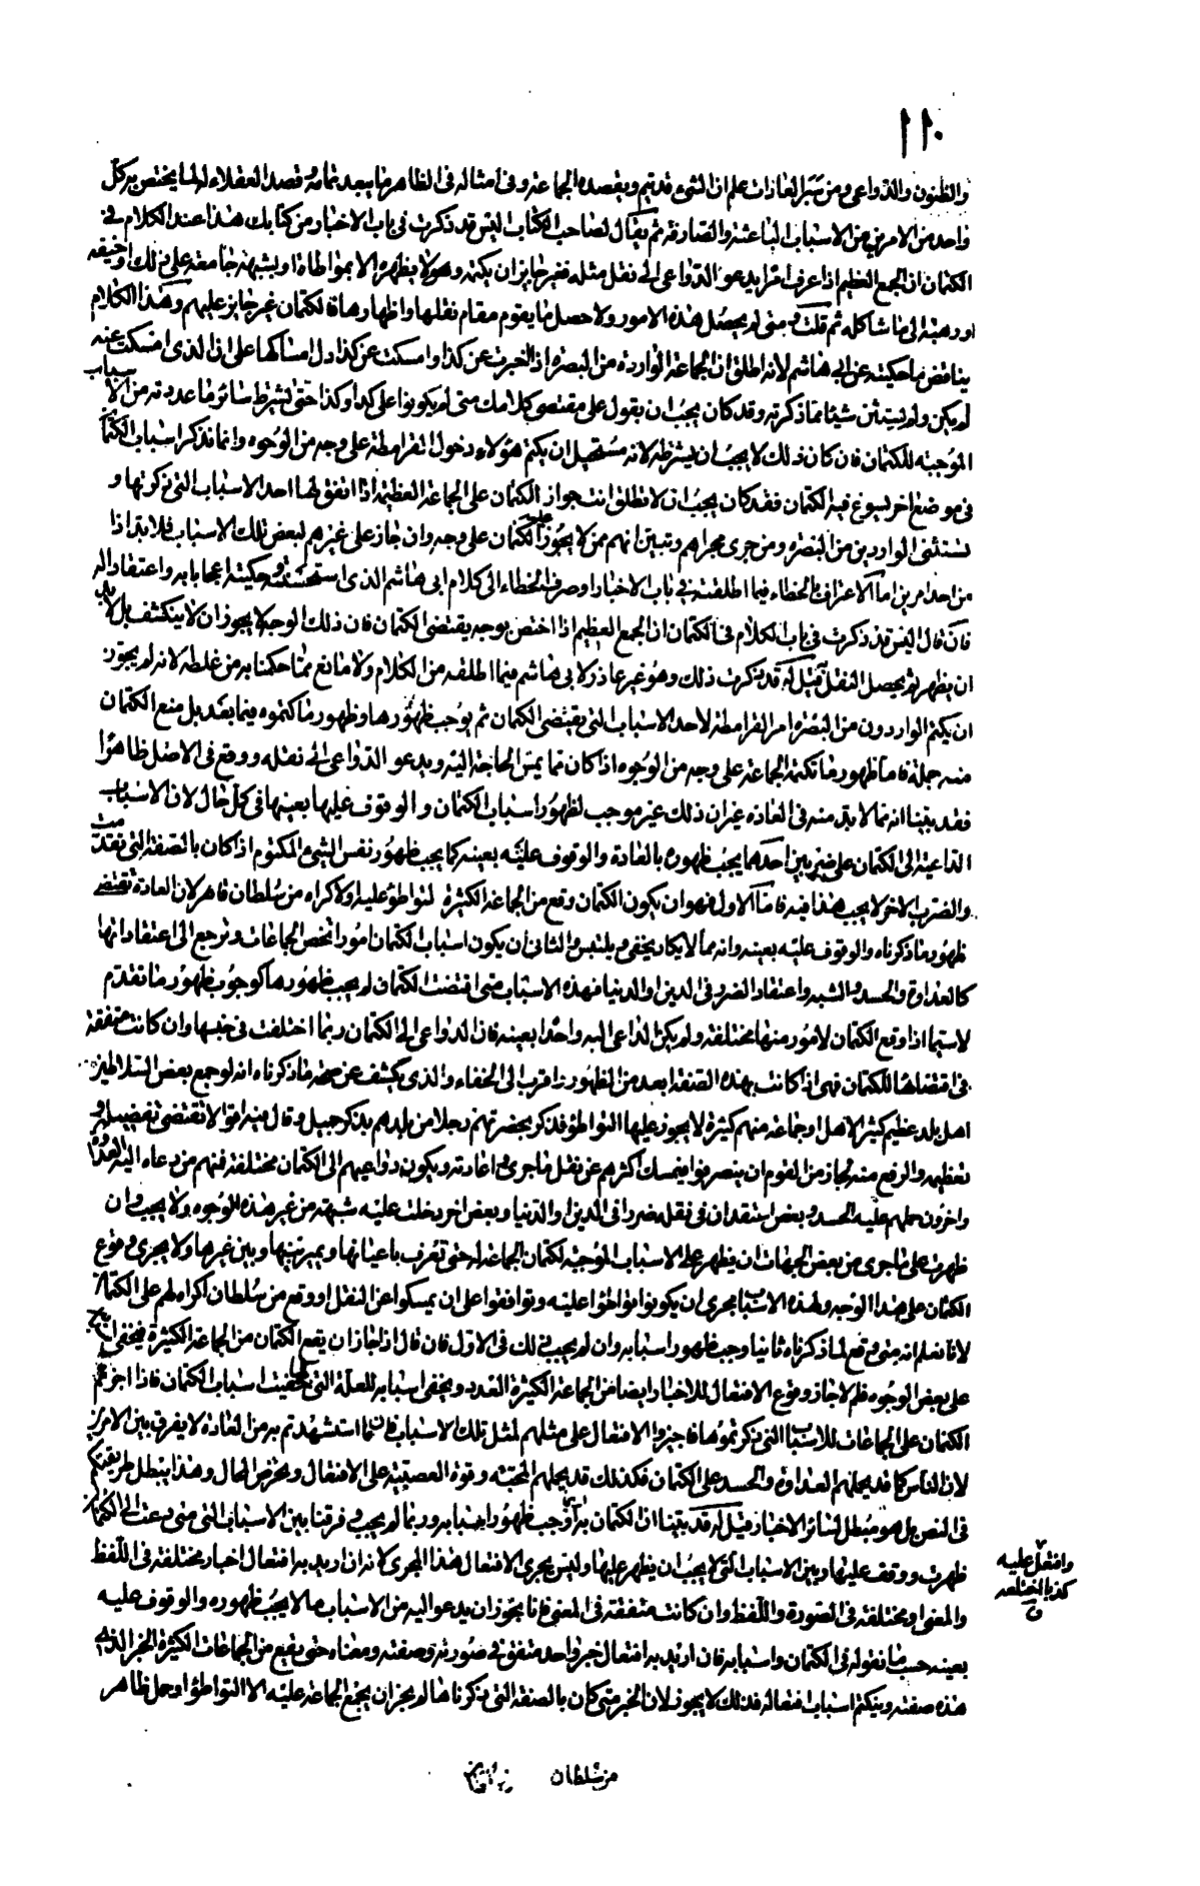 ١١٠
والظنون والدواعي ومن سبر العادات علم ان الشيء قد يتم ويقصده الجماعة وفي امثاله في الظاهر ما يبعد تمامه وقصد العقلاء له لما يختص به كل
واحد من الامرين من الاسباب الباعثة والصارفة ثم يقال لصاحب الكتاب اليس قد ذكرت في باب الاخبار من كتابك هذا عند الكلام في
الكتمان ان الجمع العظيم اذا عرف امرا يدعو الدواعي الى نقل مثله فغير جايز ان يكتمه وهؤلاء يظهره الا بمواطاة او شبهة جامعة على ذلك او خيفة
او رهبة الى ما شاكله ثم قلت ومتى لم يحصل هذه الامور ولا حصل ما يقوم مقام نقلها واظهارها فالكتمان غير جايز عليهم وهذا الكلام
يناقض ما حكيته عن ابي هاشم لانه اطلق ان الجماعة الواردة من البصرة اذا اخبرت عن كذا وامسكت عن كذا دل امساكها على ان الذي امسكت عنه
لم يكن ولم يستثن شيئا مما ذكرته وقد كان يجب ان يقول على مقتضى كلامك متى لم يكونوا على كذا وكذا حتى يشرط سائر ما عددته من الاسباب
الموجبة للكتمان فان كان ذلك لا يجب ان يشرطه لانه مستحيل ان يكتم هؤلاء دخول القرامطة على وجه من الوجوه وانما تذكر اسباب الكتمان
في موضع اخر يسوغ فيه الكتمان فقد كان يجب ان لا تطلق انت جواز الكتمان على الجماعة العظيمة اذا اتفق لها احد الاسباب التي ذكرتها و
تستثني الواردين من البصرة ومن جرى مجراهم وتبين انهم ممن لا يجوز عليه الكتمان على وجه وان جاز على غيرهم لبعض تلك الاسباب فلا بد اذا
من احد امرين اما الاعتراف بالخطاء فيما اطلقته في باب الاخبار او صرف الخطاء الى كلام ابي هاشم الذي استحسنته وحكيته اعجابا به واعتقادا له
فان قال اليس قد ذكرت في باب الكلام في الكتمان ان الجمع العظيم اذا اختص بوجه يقتضي الكتمان فان ذلك الوجه لا يجوز ان لا ينكشف بل لا بد
ان يظهر ثم يحصل النقل قيل له قد ذكرت ذلك وهو غير عاذر لابي هاشم فيما اطلقه من الكلام ولا مانع مما حكمنا به من غلطه لانه لم يجوز
ان يكتم الواردون من البصرة امر القرامطة لاحد الاسباب التي يقتضي الكتمان ثم يوجب ظهورها وظهور ما كتموه فيما بعد بل منع الكتمان
منه جملة فاما ظهور ما تكتمه الجماعة على وجه من الوجوه اذا كان مما يمس الحاجة اليه ويدعو الدواعي الى نقله ووقع في الاصل ظاهرا
فقد بينا انه مما لا بد منه في العادة غير ان ذلك غير موجب لظهور اسباب الكتمان والوقوف عليها بعينها في كل حال لان الاسباب
الداعية الى الكتمان على ضربين احدهما يجب ظهوره بالعادة والوقوف عليه بعينه كما يجب ظهور نفس الشيء المكتوم اذا كان بالصفة التي تقدمت
والضرب الاخر لا يجب هذا فيه فاما الاول فهو ان يكون الكتمان وقع من الجماعة الكثيرة لتواطؤ عليه ولاكراه من سلطان قاهر لان العادة تقتضي
ظهور ما ذكرناه والوقوف عليه بعينه وانه مما لا يكاد يخفى ويلتبس والثاني ان يكون اسباب الكتمان امورا تخص الجماعات وترجع الى اعتقاداتها
كالعداوة والحسد والشبه واعتقاد الضرر في الدين والدنيا فهذه الاسباب متى اقتضت الكتمان لم يجب ظهورها كوجوب ظهور ما تقدم
لا سيما اذا وقع الكتمان لامور منها مختلفة ولم يكن الداعي اليه واحدا بعينه فان الدواعي الى الكتمان ربما اختلفت في جنسها وان كانت متفقة
في اقتضائها للكتمان فهي اذا كانت بهذه الصفة ابعد من الظهور واقرب الى الخفاء والذي يكشف عن صحة ما ذكرناه انه لو جمع بعض السلاطين
اهل بلد عظيم كثير الاهل او جماعة منهم كثيرة لا يجوز عليها التواطؤ فذكر بحضرتهم رجلا من بلدهم بذكر جميل وقال فيه اقوالا تقتضي تفضيله و
تعظيمه والرفع منه لجاز من القوم ان ينصرفوا فيمسك اكثرهم عن نقل ما جرى واعادته ويكون دواعيهم الى الكتمان مختلفة فمنهم من دعاه اليه العداوة
واخرون حملهم عليه الحسد وبعض استقد ان في نقله ضررا في الدين او الدنيا وبعض اخر دخلت عليه شبهة من غير هذه الوجوه ولا يجب وان
ظهرت على ما جرى من بعض الجهات ان يظهر على الاسباب الموجبة لكتمان الجماعة له حتى تعرف باعيانها ويميز بينها وبين غيرها ولا يجري وقوع
الكتمان على هذا الوجه ولهذه الاسباب مجرى ان يكونوا تواطؤا عليه وتوافقوا على ان يمسكوا عن النقل او وقع من سلطان اكراه لهم على الكتمان
لانا نعلم انه متى وقع لما ذكرناه ثانيا وجب ظهور اسبابه وان لم يجب ذلك في الاول فان قال اذا جاز ان يقع الكتمان من الجماعة الكثيرة فيخفى اسبابه
على بعض الوجوه فلم لا جاز وقوع الافتعال للاخبار ايضا من الجماعة الكثيرة العدد ويخفى اسبابه للعلة التي لها خفيت اسباب الكتمان فاذا اجزتم
الكتمان على الجماعات للاسباب التي ذكرتموها فاجيزوا الافتعال على مثلهم لمثل تلك الاسباب فان ما استشهدتم به من العادة لا يفرق بين الامرين
لان الناس كما قد يحملهم العداوة والحسد على الكتمان فكذلك قد يحملهم المحبة وقوة العصبية على الافتعال ويخرص المحال وهذا يبطل طريقتكم
في النص بل هو مبطل لسائر الاخبار قيل له قد بينا ان الكتمان ربما وجب ظهور اسبابه وربما لم يجب وفرقنا بين الاسباب التي متى دعت الى الكتمان
ظهرت ووقف عليها وبين الاسباب التي لا يجب ان يظهر عليها وليس يجري الافتعال هذا المجرى لانه ان اريد به افتعال اخبار مختلفة في اللفظ
والمعنى او مختلفة في الصورة واللفظ وان كانت متفقة في المعنى فانا يجوز ان يدعو اليه من الاسباب ما لا يجب ظهوره والوقوف عليه
بعينه حسب ما نقوله في الكتمان واسبابه فان اريد به افتعال خبر واحد متفق في صورته وصفته ومعناه حتى يقع من الجماعات الكثيرة الخبر الذي
هذه صفته وينكتم اسباب افتعاله فذلك لا يجوز لان الخبر متى كان بالصفة التي ذكرناها لم يجز ان يجمع الجماعة عليه الا التواطؤ او حمل ظاهر
وافتعل عليه
كذبا اختلقه
ق
من سلطان